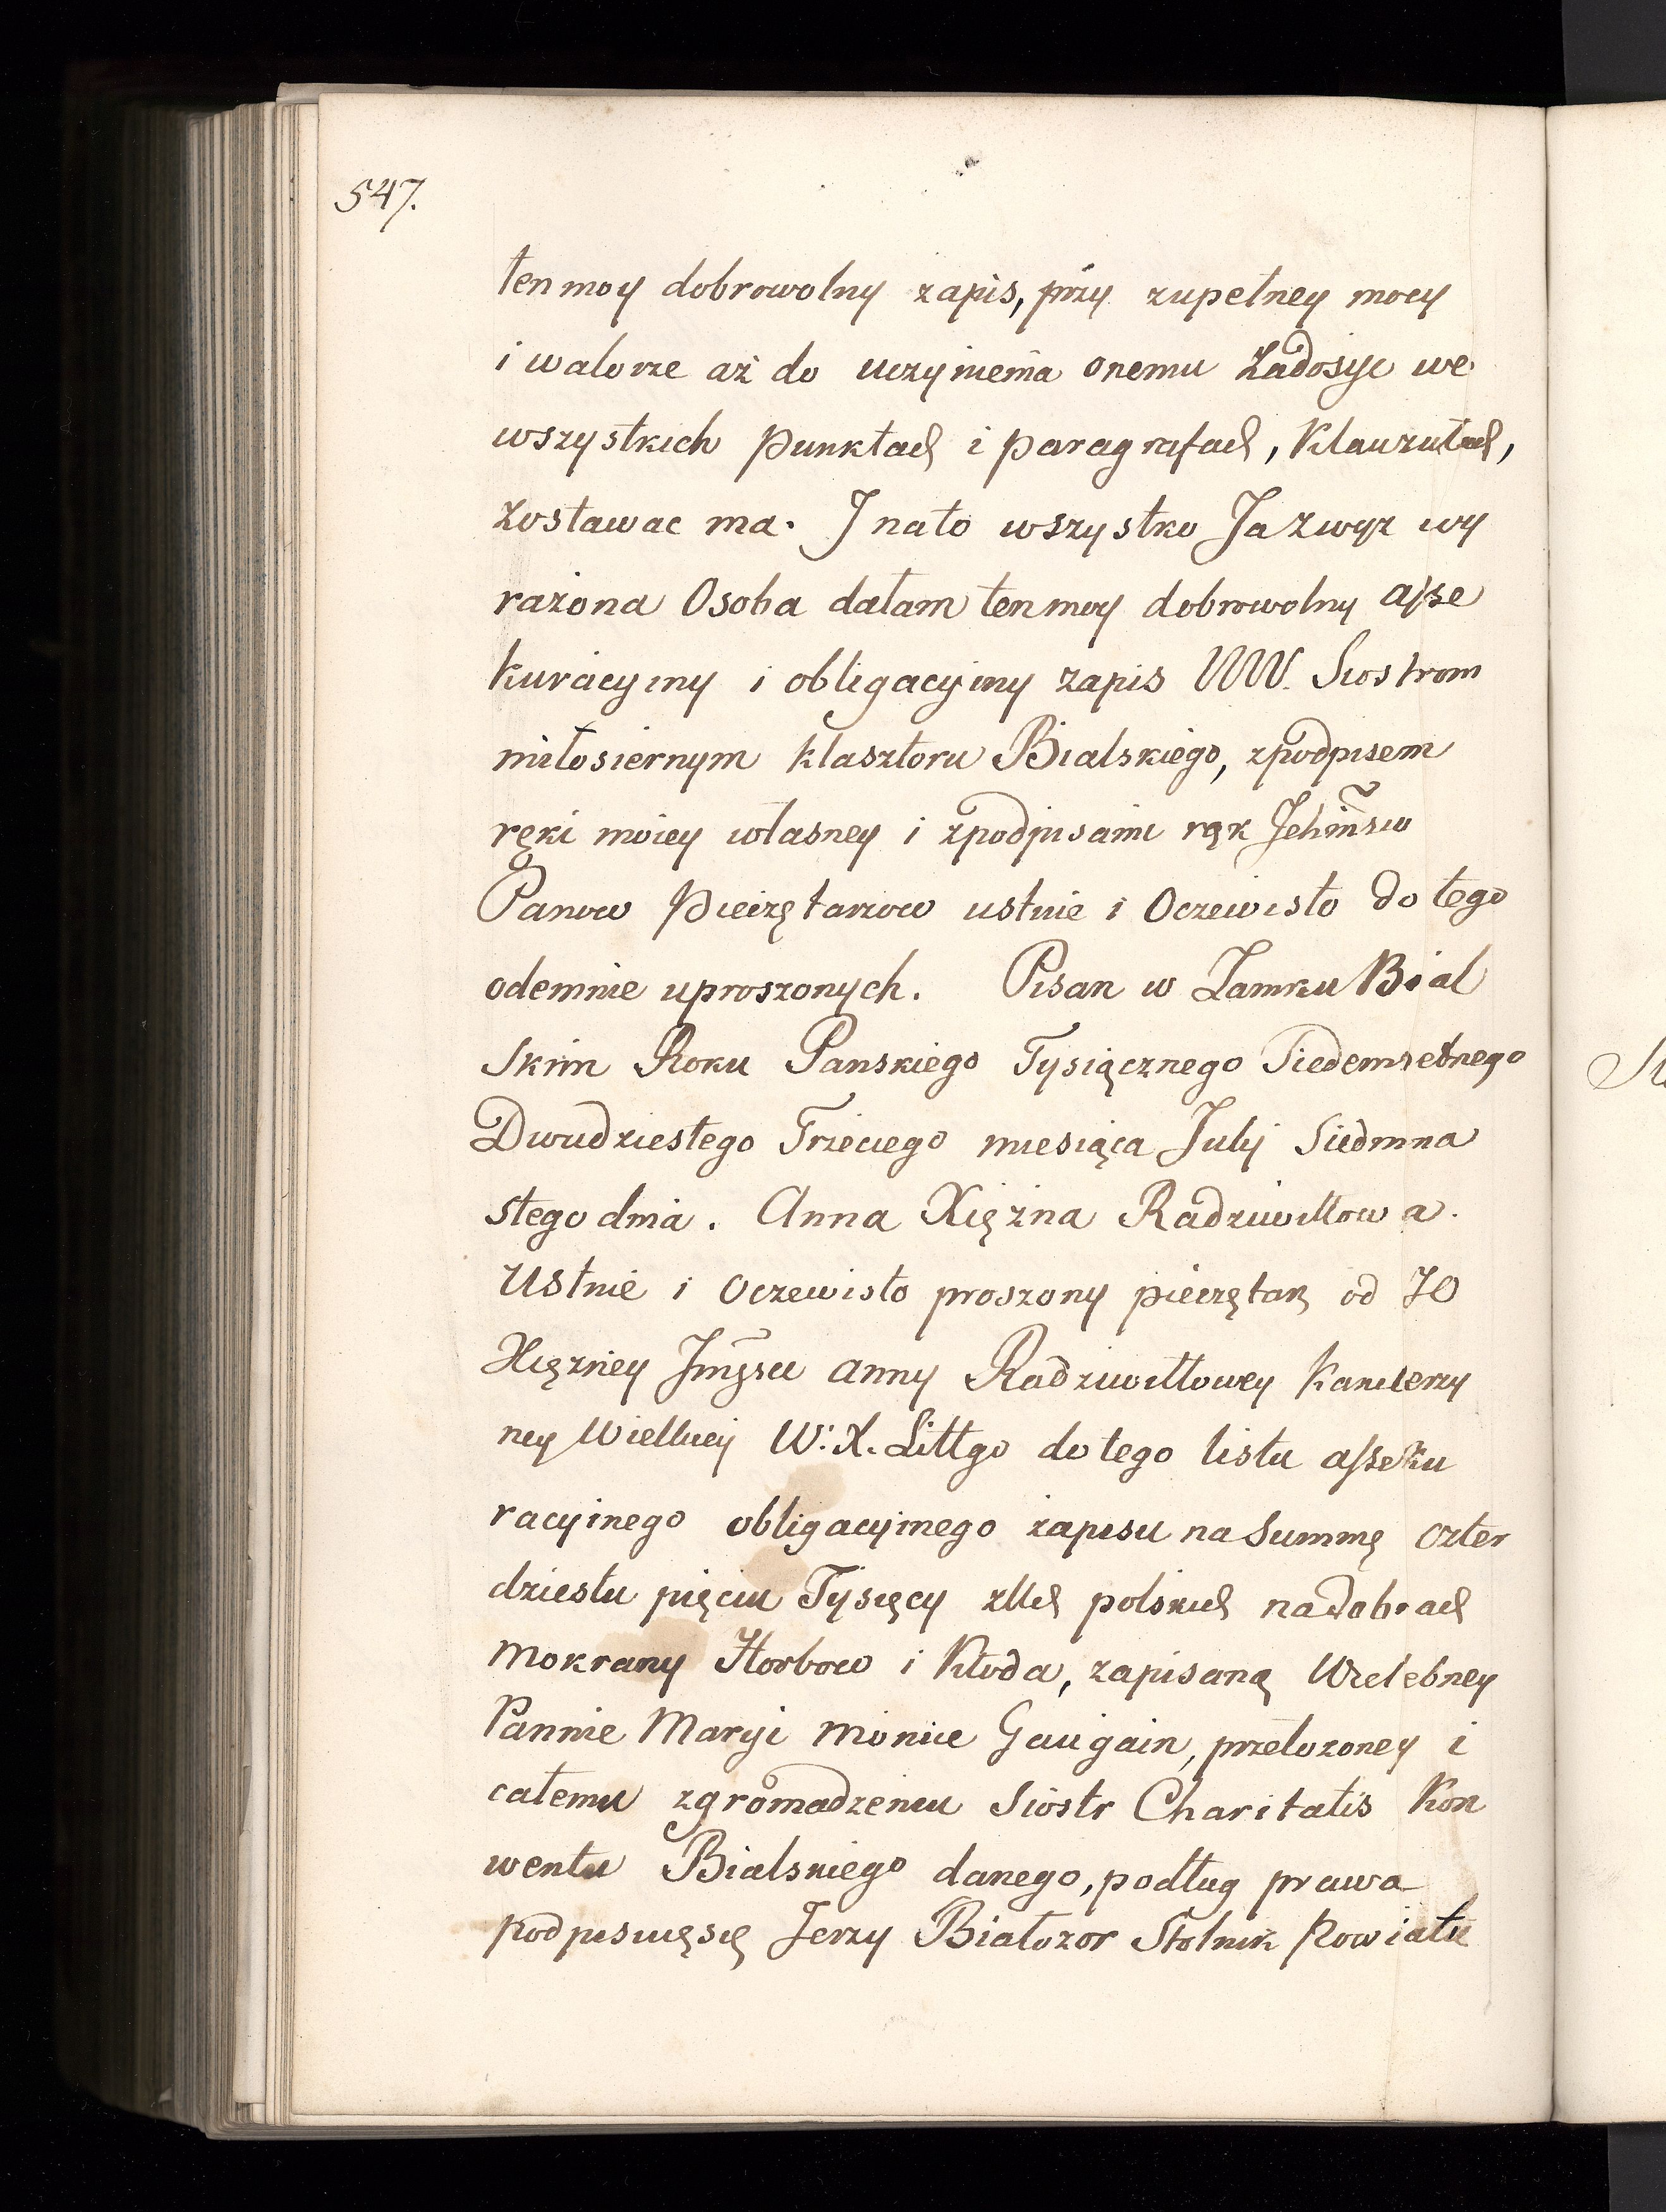 547.
ten moy dobrowolny zapis, przy zupełney mocy
i walorze aż do uczynienia onemu Zadosyc we
wszystkich punktach i paragrafach, Klauzułach,
zostawac ma. J nato wszystko Ja zwyz wy
rażona Osoba dałam ten moy dobrowolny asse
kuracyiny i obligacyiny zapis WW. Siostrom
miłosiernym klasztoru Bialskiego, zpodpisem
ręki moiey własney i zpodpisami rąk Jchmsw
Panow Pieczętarzow ustnie i Oczewisto do tego
odemnie uproszonych. Pisan w Zamku Bial
skim Roku Panskiego Tysiącznego Siedemsetnego
Dwudziestego Trzeciego miesiąca Julij Siedmna
stego dnia. Anna Xiężna Radziwiłłowa.
Ustnie i oczewisto proszony pieczętarz od JO
Xiężney Jmści Anny Radziwiłłowey Kanclerzy
ney Wielkiej W: X. Littgo do tego listu asseku
racyinego obligacyinego zapisu na Summę czter
dziestu pięciu Tysięcy złłch polskich na dobrach
Mokrany Horbow i Kłoda, zapisaną Wielebney
Pannie Maryi Monice Gauigain, przełozoney i
całemu zgromadzeniu Siostr Charitatis Kon
wentu Bialskiego danego, podług prawa
podpisuięsię Jerzy Białozor Stolnik Powiatu